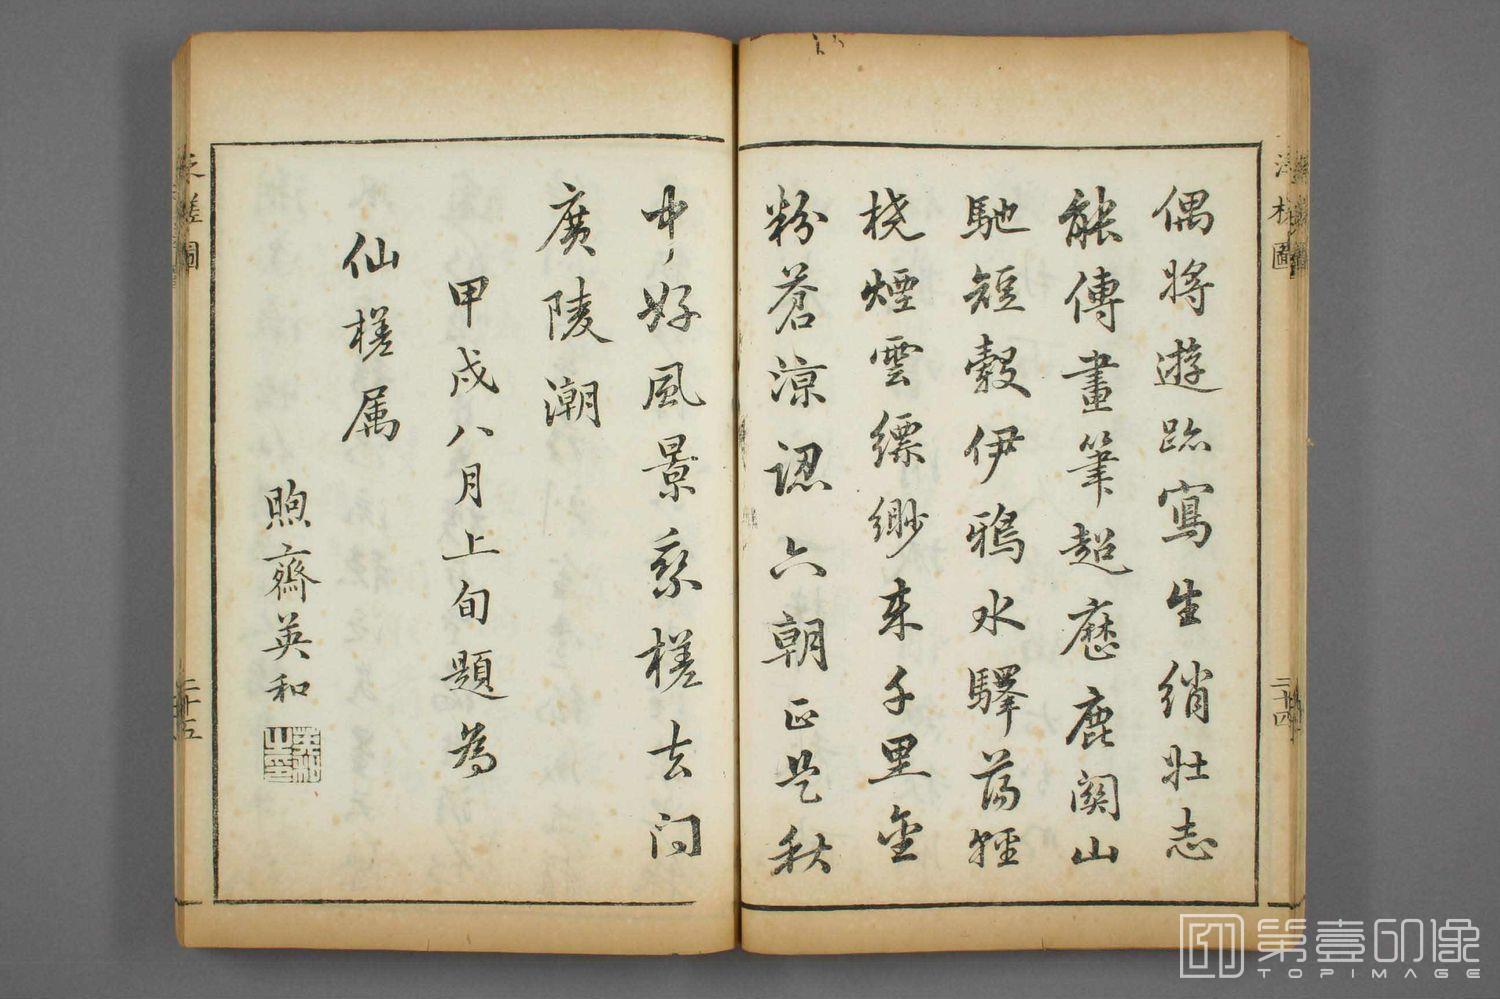 偶將遊跡寫生綃壯志
能傳畫筆超歷鹿關山
馳短轂伊鴉水驛蕩輕
橈煙雲縹緲來千里金
粉蒼涼認六朝正是秋
中好風景乘槎去問
廣陵潮
甲戌八月上旬題為
仙槎属
煦齋英和
英和之印
泛槎圖
二十四
泛槎圖
二十五
第壹印像
TOPIMAGE